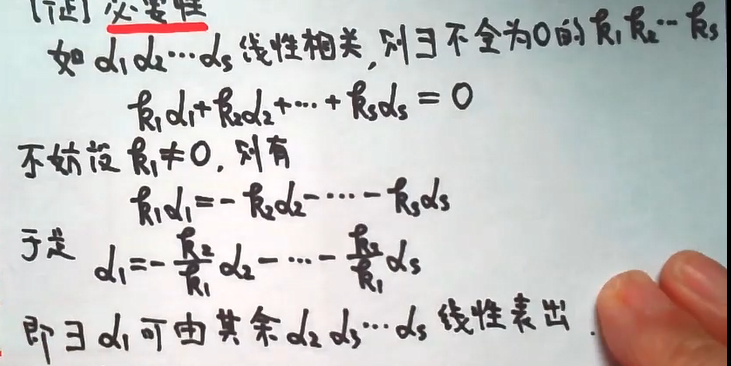 [证] 必要性
如 α₁ α₂ ⋯ αₛ 线性相关, 则∃不全为0的 k₁ k₂ ⋯ kₛ
k₁α₁+k₂α₂+⋯+kₛαₛ = 0
不妨设 k₁≠0, 则有
k₁α₁=-k₂α₂-⋯-kₛαₛ
于是 α₁=-k₂/k₁ α₂-⋯-kₛ/k₁ αₛ
即∃ α₁ 可由其余 α₂ α₃⋯αₛ 线性表出.